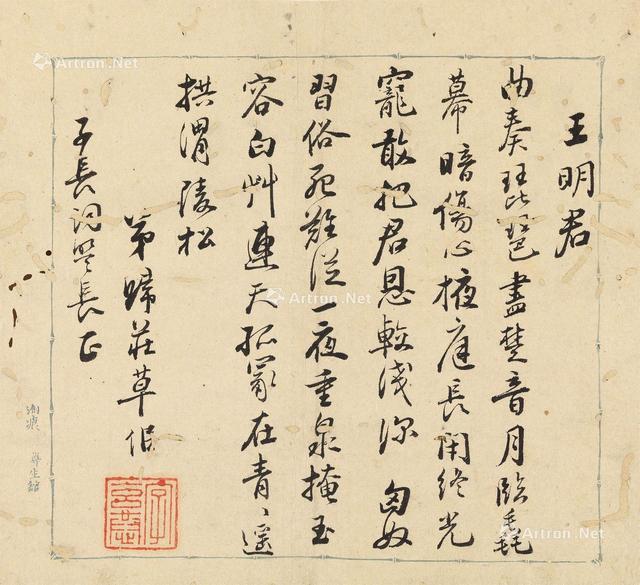 王明君
曲奏琵琶盡楚音月臨毳
幕暗傷心掖庭長閉終光
寵敢把君恩較淺深 匈奴
習俗死難從一夜重泉掩玉
容白艸連天孤冢在青〻遙
拱渭陵松
弟歸莊草
子長詞盟長正
Artron.Net
Artron.Net
Artron.Net
Artron.Net
Artron.Net